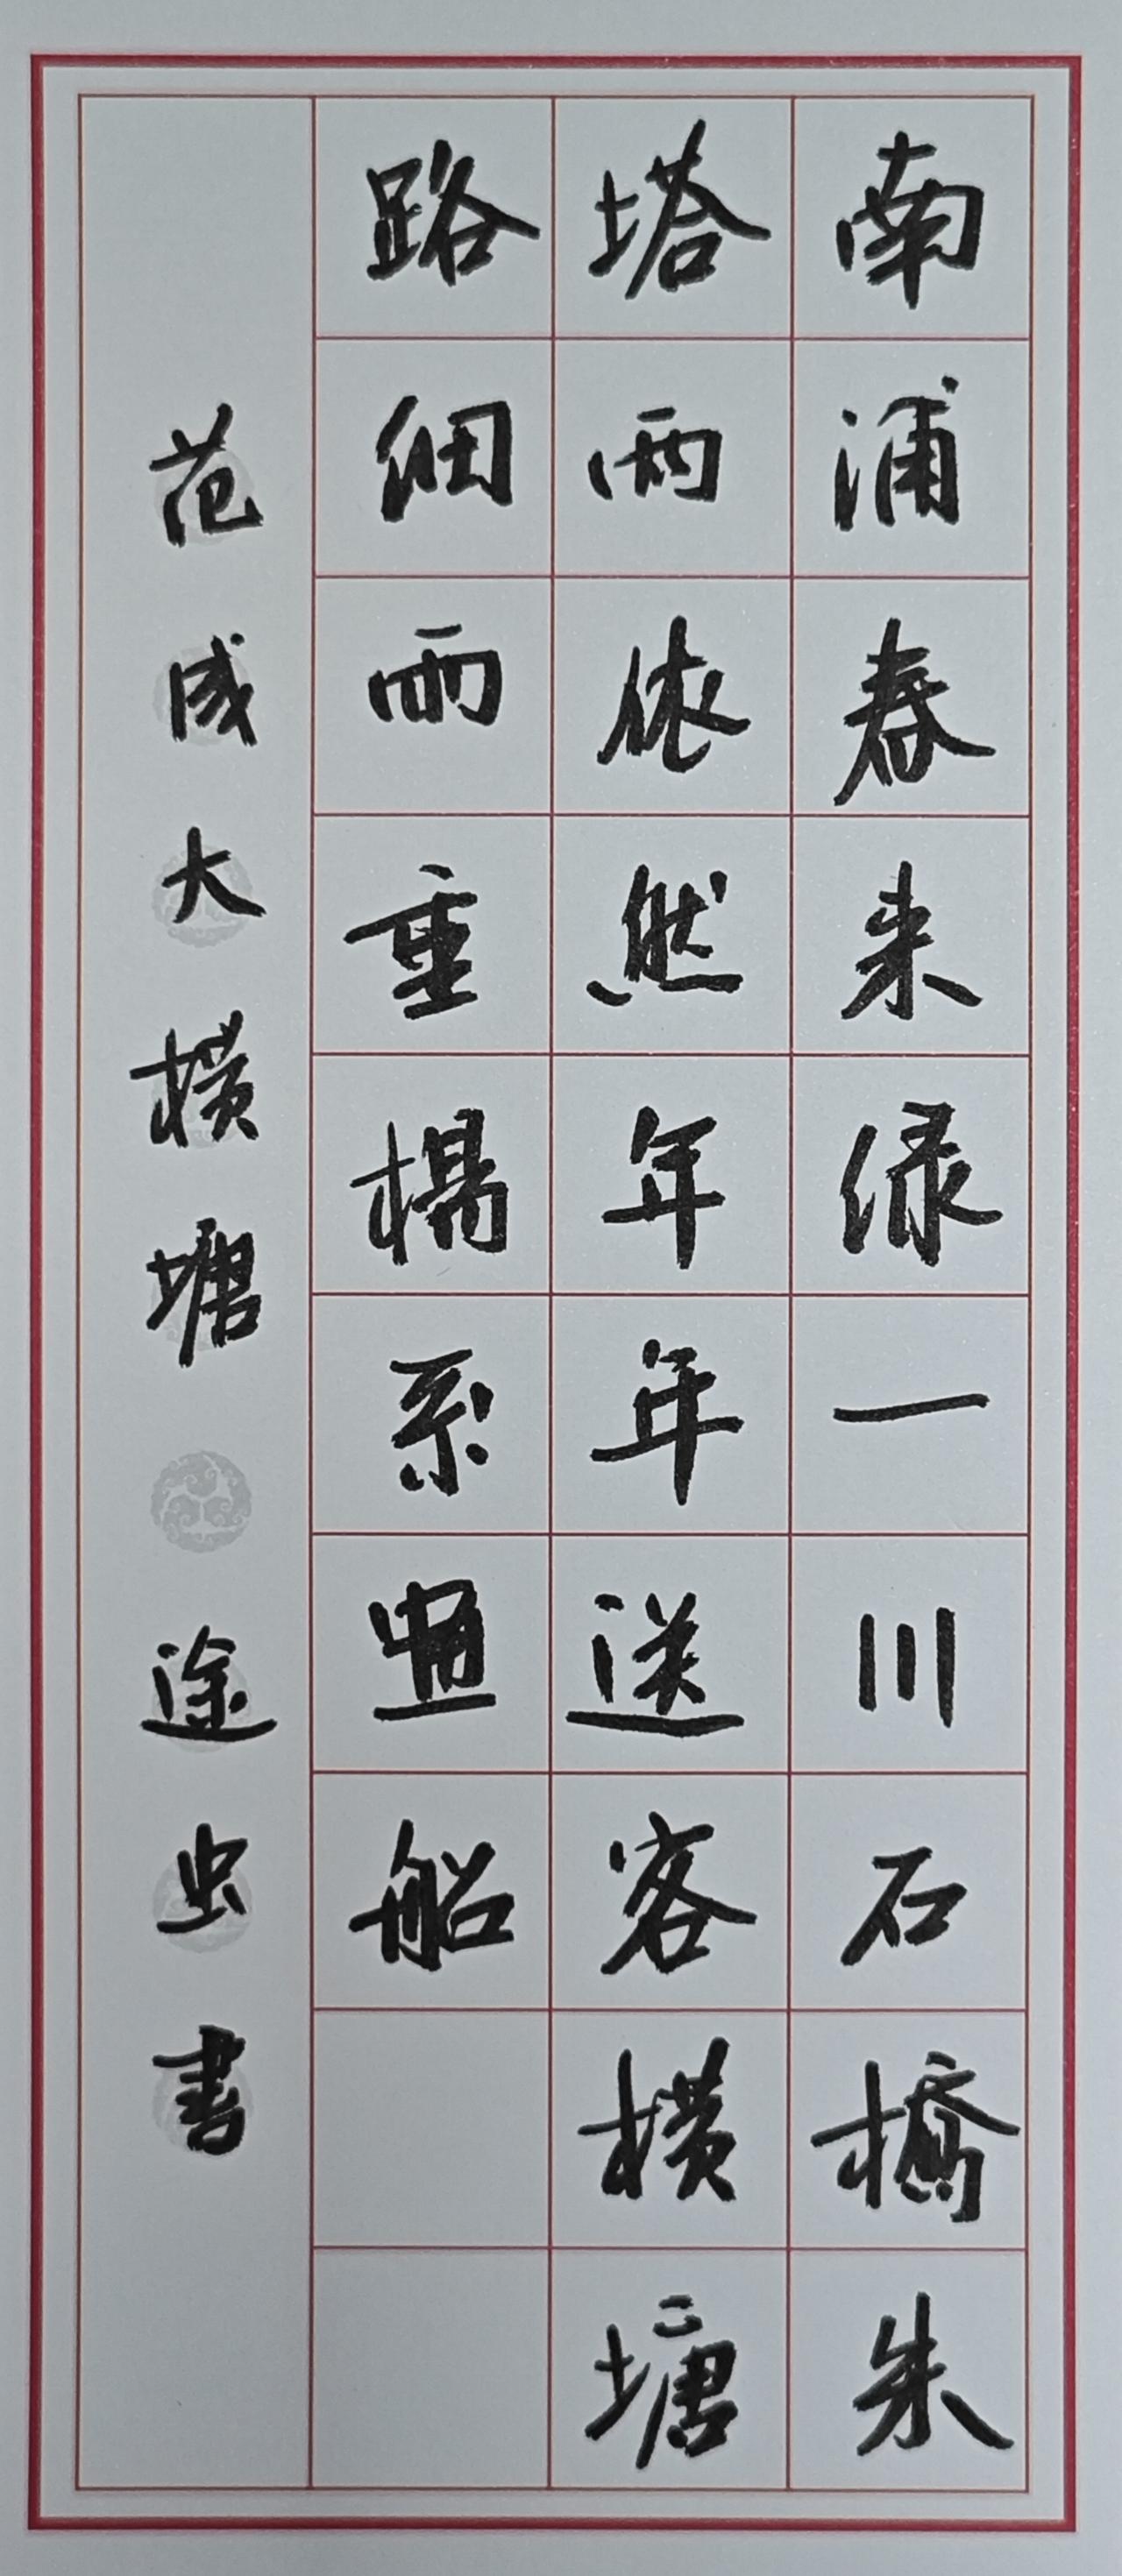 南浦春来绿一川石橋朱
塔两依然年年送客横塘
路细雨垂楊系畫船
范成大横塘 途虫書